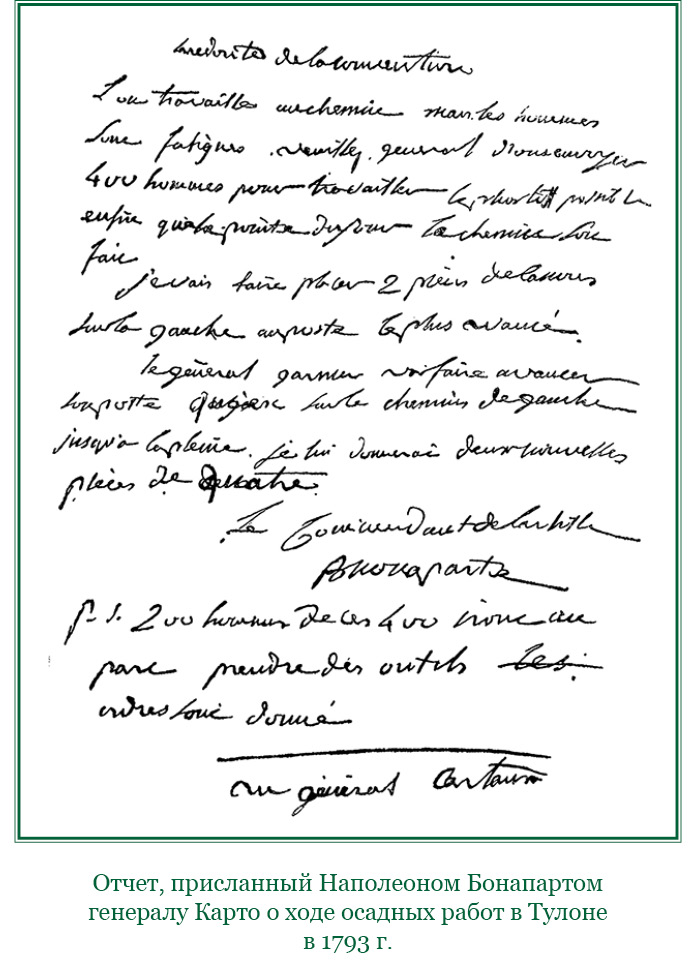 de la convention
L'on travaille au chemin mais les hommes
sont fatigues . veuilléz . general nous envoyer
400 hommes pour travailler
enfin que la pointe du jour le chemin soit
fait
je vais faire placer 2 pièces de
sur la gauche au poste le plus avancé .
le général va faire avancer
sur le chemin de gauche
jusqu'a la pleine . je lui donnerai deux nouvelles
pièces de quatre .
Le Commandant de l'artill
Buonaparte
p. s. 200 hommes de ces 400 iront au
parc prendre des outils les .
ordres sont donné
au général Cartaux
Отчет, присланный Наполеоном Бонапартом
генералу Карто о ходе осадных работ в Тулоне
в 1793 г.